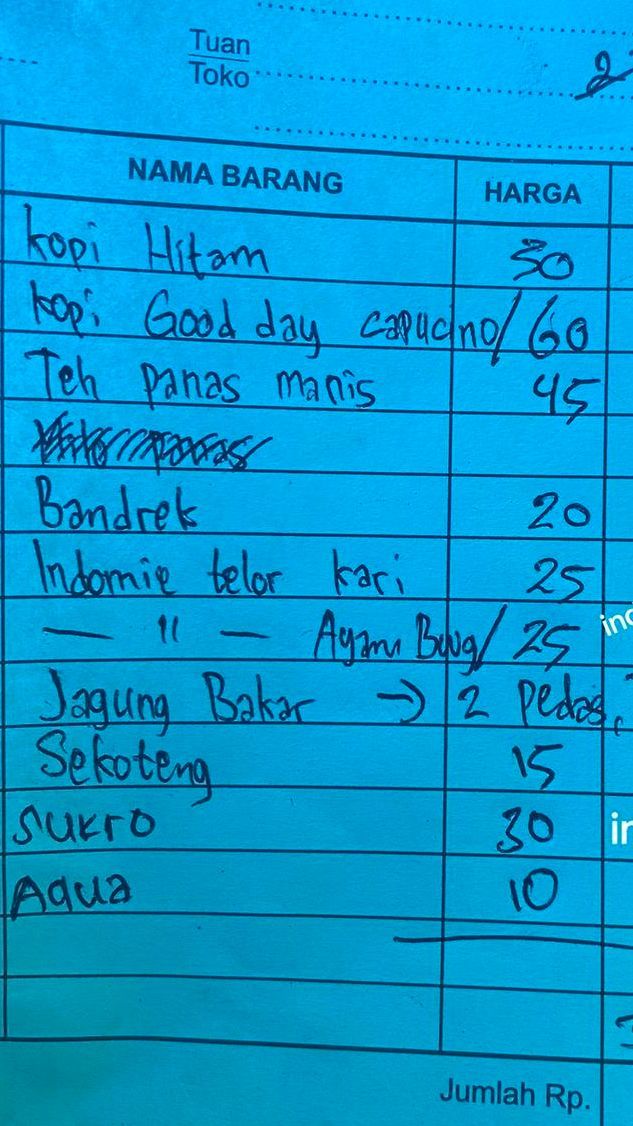 Tuan
Toko
NAMA BARANG HARGA
kopi Hitam 30
kopi Good day capucino/ 60
Teh panas manis 45
Bandrek 20
Indomie telor kari 25
— " — Ayam Bwg/ 25
Jagung Bakar → 2 Pedas,
Sekoteng 15
sukro 30
Aqua 10
Jumlah Rp.